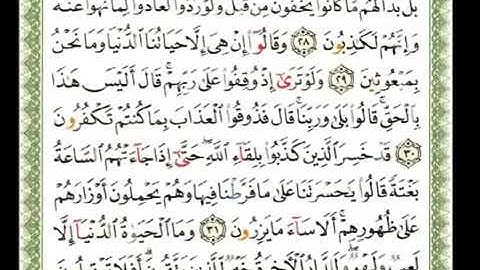 بَلْ بَدَا لَهُم مَّا كَانُوا۟ يُخْفُونَ مِن قَبْلُ وَلَوْ رُدُّوا۟ لَعَادُوا۟ لِمَا نُهُوا۟ عَنْهُ
وَإِنَّهُمْ لَكَٰذِبُونَ ٢٨ وَقَالُوٓا۟ إِنْ هِىَ إِلَّا حَيَاتُنَا ٱلدُّنْيَا وَمَا نَحْنُ
بِمَبْعُوثِينَ ٢٩ وَلَوْ تَرَىٰٓ إِذْ وُقِفُوا۟ عَلَىٰ رَبِّهِمْ ۚ قَالَ أَلَيْسَ هَٰذَا
بِٱلْحَقِّ ۚ قَالُوا۟ بَلَىٰ وَرَبِّنَا ۚ قَالَ فَذُوقُوا۟ ٱلْعَذَابَ بِمَا كُنتُمْ تَكْفُرُونَ
٣٠ قَدْ خَسِرَ ٱلَّذِينَ كَذَّبُوا۟ بِلِقَآءِ ٱللَّهِ ۖ حَتَّىٰٓ إِذَا جَآءَتْهُمُ ٱلسَّاعَةُ
بَغْتَةً قَالُوا۟ يَٰحَسْرَتَنَا عَلَىٰ مَا فَرَّطْنَا فِيهَا وَهُمْ يَحْمِلُونَ أَوْزَارَهُمْ
عَلَىٰ ظُهُورِهِمْ ۚ أَلَا سَآءَ مَا يَزِرُونَ ٣١ وَمَا ٱلْحَيَوٰةُ ٱلدُّنْيَآ إِلَّا
لَعِبٌ وَلَهْوٌ ۖ وَلَلدَّارُ ٱلْءَاخِرَةُ خَيْرٌ لِّلَّذِينَ يَتَّقُونَ ۗ أَفَلَا تَعْقِلُونَ